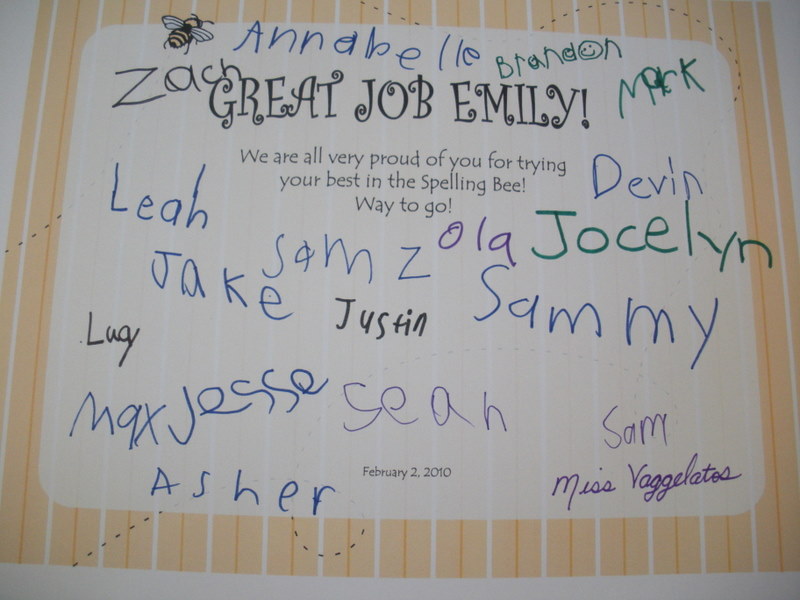 Annabelle Brandon
Zach Mark
GREAT JOB EMILY!
We are all very proud of you for trying
your best in the Spelling Bee!
Way to go!
Devin
Leah
Ola Jocelyn
Jake Sam Z
Sammy
Lucy Justin
Max Jesse Sean
Sam
February 2, 2010
Miss Vaggelatos
Asher